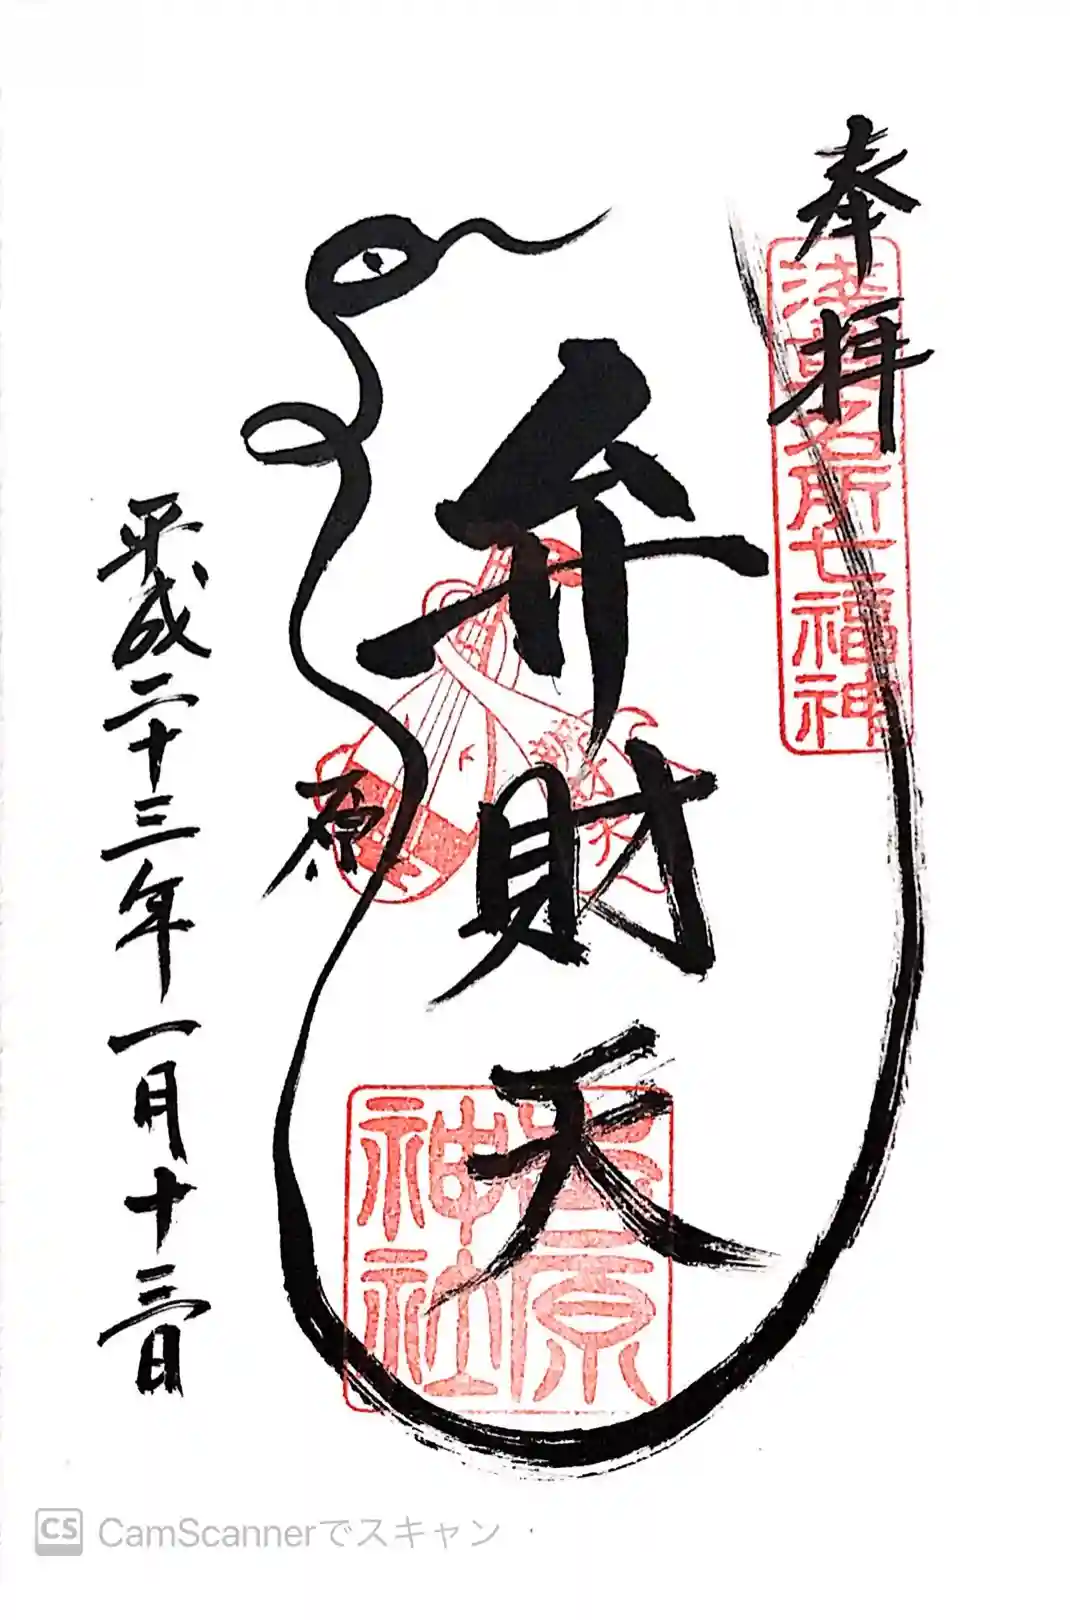 奉拝
浅草名所七福神
弁財天
吉原神社
平成二十三年一月十三日
CS CamScannerでスキャン